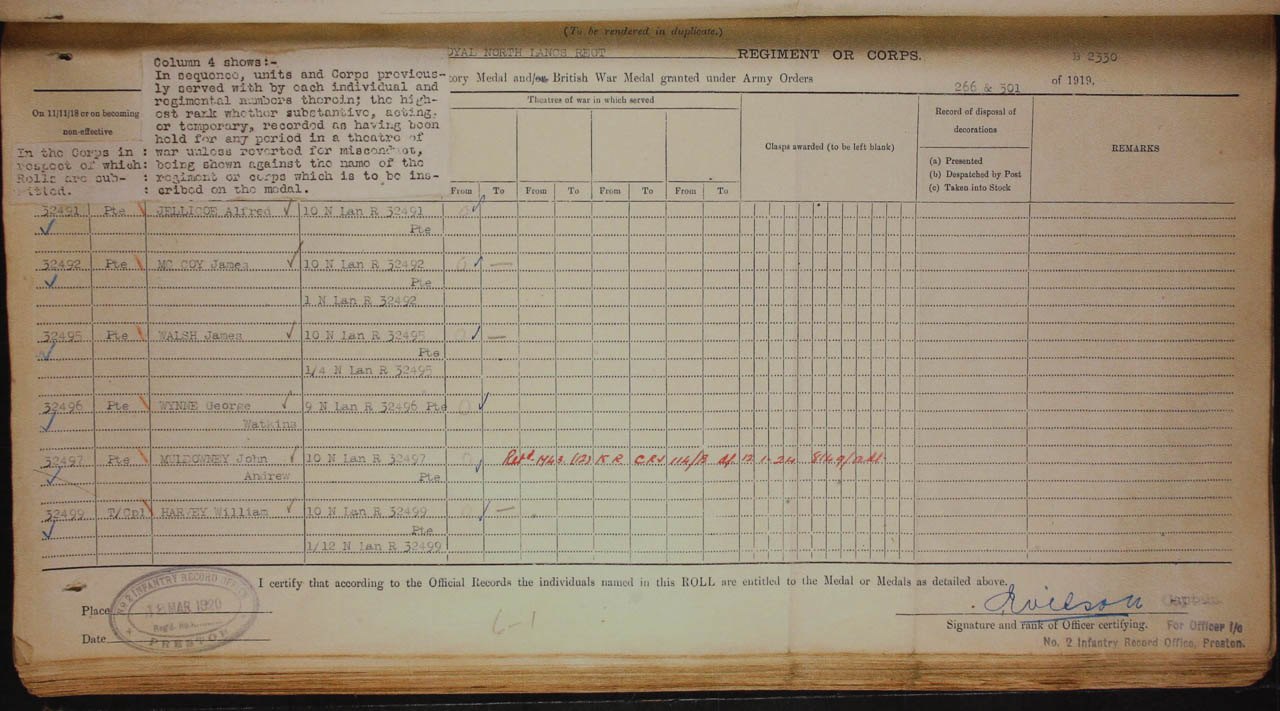 (To be rendered in duplicate.)
OYAL NORTH LANCS REGT REGIMENT OR CORPS. B 2330
ory Medal and/or British War Medal granted under Army Orders 266 & 301 of 1919.
Column 4 shows:-
In sequence, units and Corps previous-
ly served with by each individual and
regimental numbers therein; the high-
est rank whether substantive, acting,
or temporary, recorded as having been
held for any period in a theatre of
war unless reverted for misconduct,
being shown against the name of the
regiment or corps which is to be ins-
cribed on the medal.
On 11/11/18 or on becoming
non-effective
In the Corps in :
respect of which:
Rolls are sub- :
mitted. :
Theatres of war in which served
From To From To From To From To
Clasps awarded (to be left blank)
Record of disposal of
decorations
(a) Presented
(b) Despatched by Post
(c) Taken into Stock
REMARKS
32491 Pte JELLICOE Alfred 10 N Lan R 32491
Pte
32492 Pte MC COY James 10 N Lan R 32492
Pte
1 N Lan R 32492
32495 Pte WALSH James 10 N Lan R 32495
Pte
1/4 N Lan R 32495
32496 Pte WYNNE George 9 N Lan R 32496 Pte
Watkins
32497 Pte MULDOWNEY John 10 N Lan R 32497 1743 (12) K R
Andrew Pte
32499 T/Cpl HARVEY William 10 N Lan R 32499
Pte
1/12 N Lan R 32499
I certify that according to the Official Records the individuals named in this ROLL are entitled to the Medal or Medals as detailed above.
Place
Date
No 2 INFANTRY RECORD OFFICE
18 MAR 1920
Regd. No.
PRESTON
6-1
Wilson Captain
Signature and rank of Officer certifying. For Officer i/c
No. 2 Infantry Record Office, Preston.